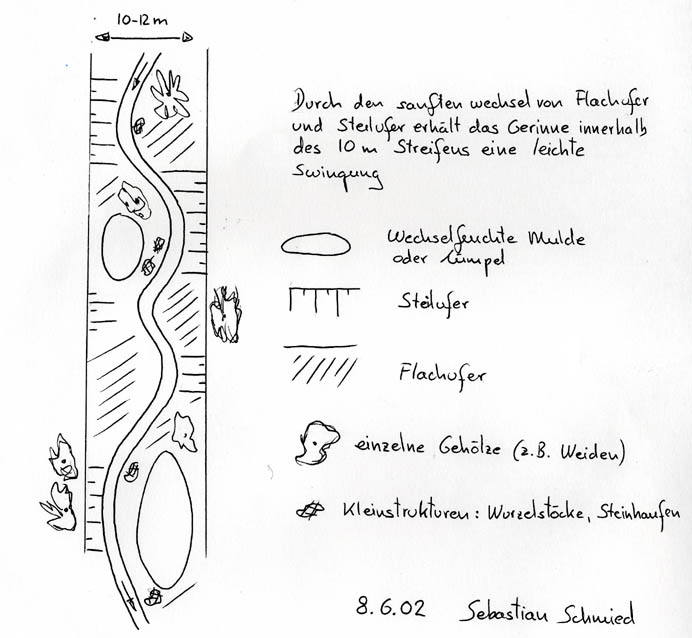 10-12 m
Durch den sanften wechsel von Flachufer
und Steilufer erhält das Gerinne innerhalb
des 10 m Streifens eine leichte
Swingung
Wechselfeuchte Mulde
oder Tümpel
Steilufer
Flachufer
einzelne Gehölze (z.B. Weiden)
Kleinstrukturen: Wurzelstöcke, Steinhaufen
8.6.02 Sebastian Schmied